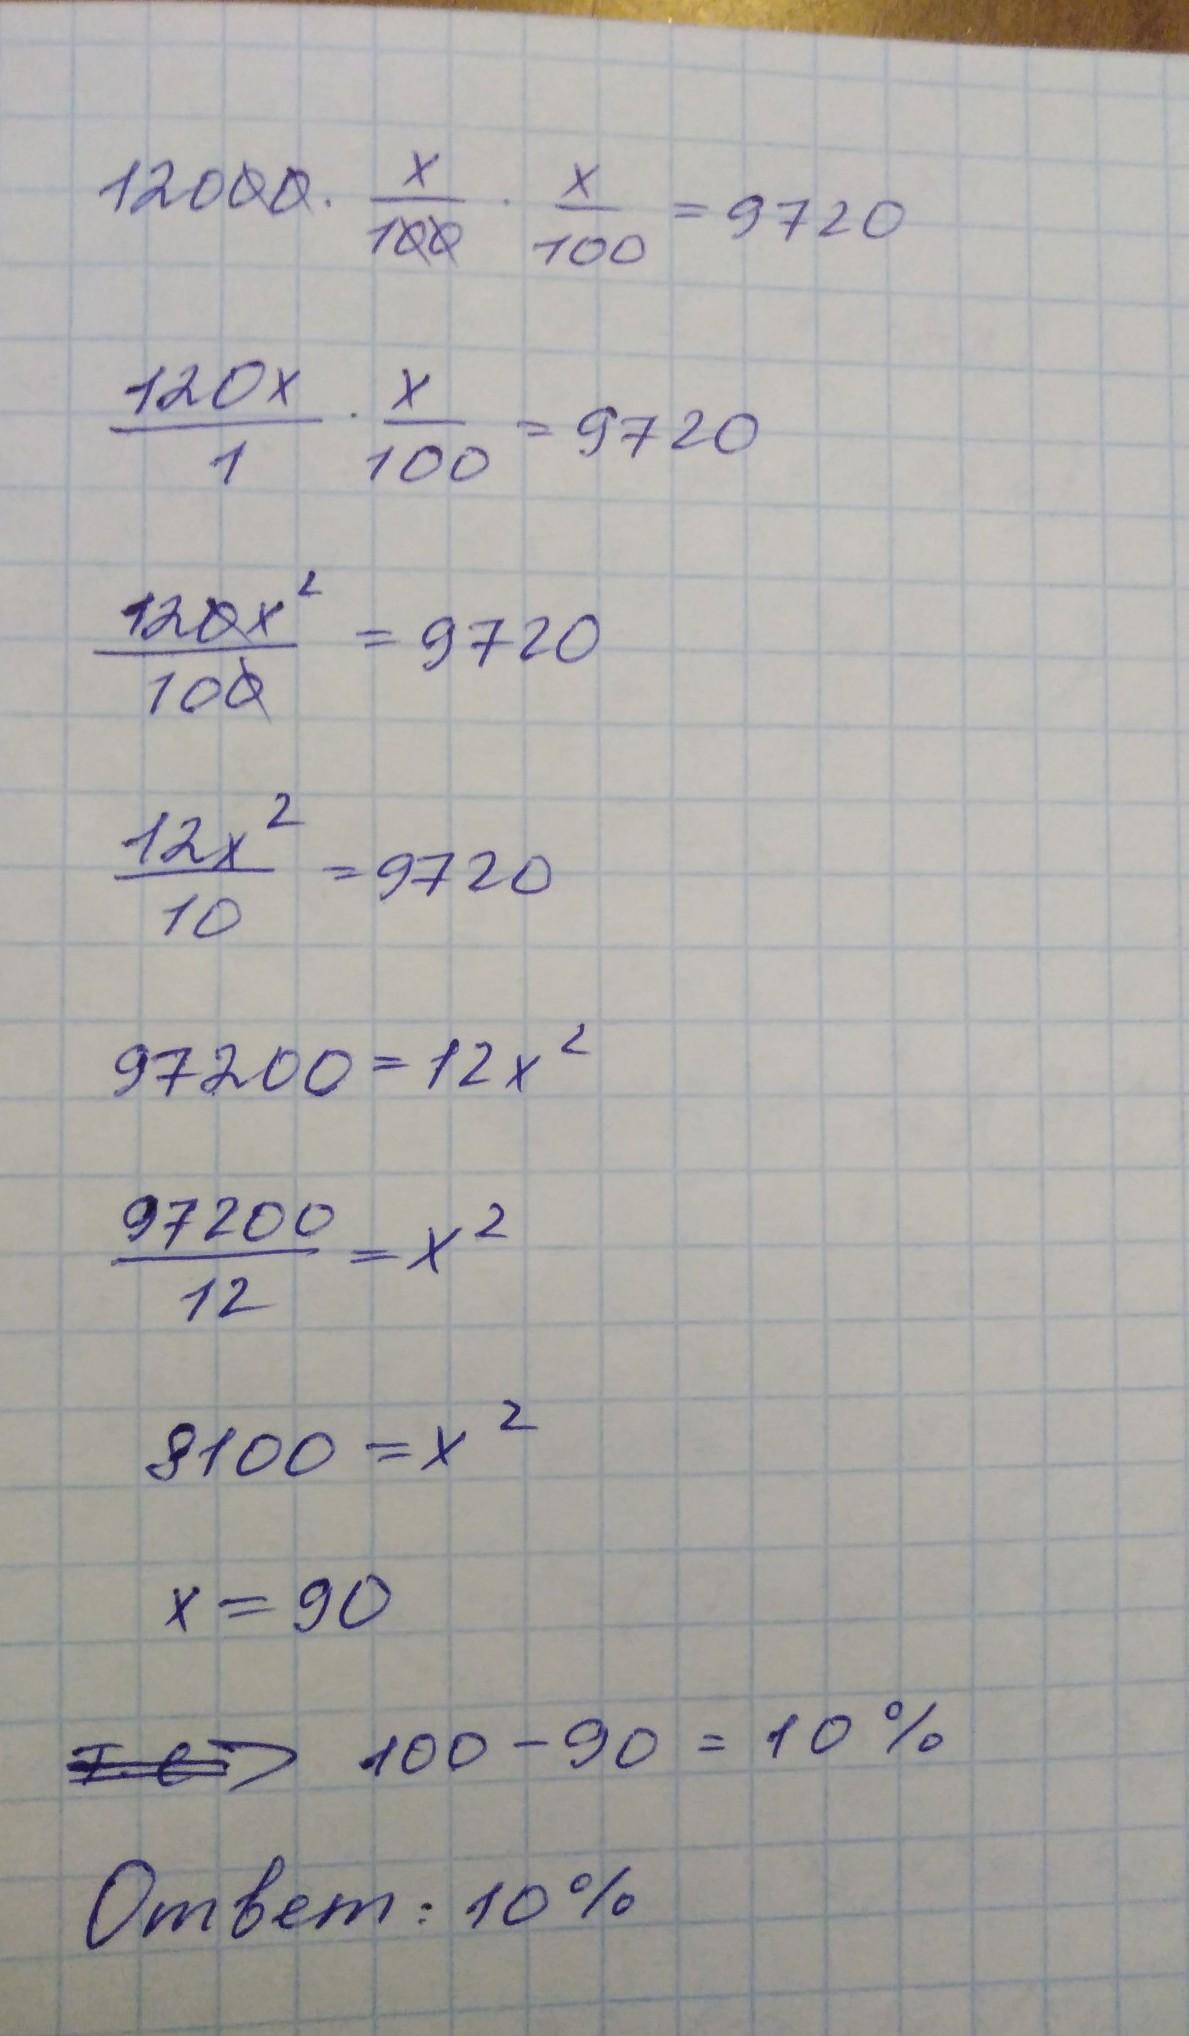 12000 · x/100 · x/100 = 9720
120x/1 · x/100 = 9720
120x²/100 = 9720
12x²/10 = 9720
97200 = 12x²
97200/12 = x²
8100 = x²
x = 90
=> 100 - 90 = 10%
Ответ: 10%